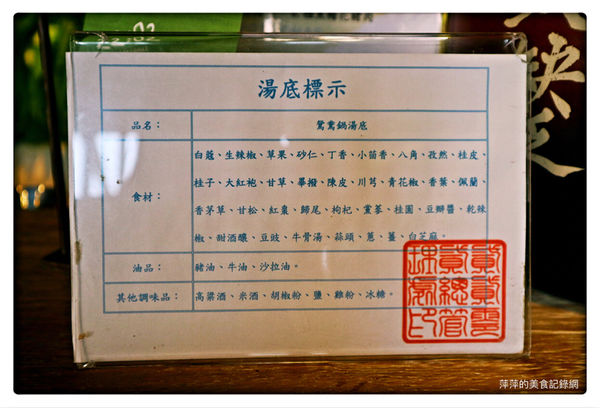 湯底標示
品名：
鴛鴦鍋湯底
食材：
白蔻、生辣椒、草果、砂仁、丁香、小茴香、八角、孜然、桂皮、
桂子、大紅袍、甘草、畢撥、陳皮、川芎、青花椒、香葉、佩蘭、
香茅草、甘松、紅棗、歸尾、枸杞、黨蔘、桂圓、豆瓣醬、乾辣
椒、甜酒釀、豆豉、牛骨湯、蒜頭、蔥、薑、白芝麻。
油品：
豬油、牛油、沙拉油。
其他調味品：
高粱酒、米酒、胡椒粉、鹽、雞粉、冰糖。
萍萍的美食記錄網